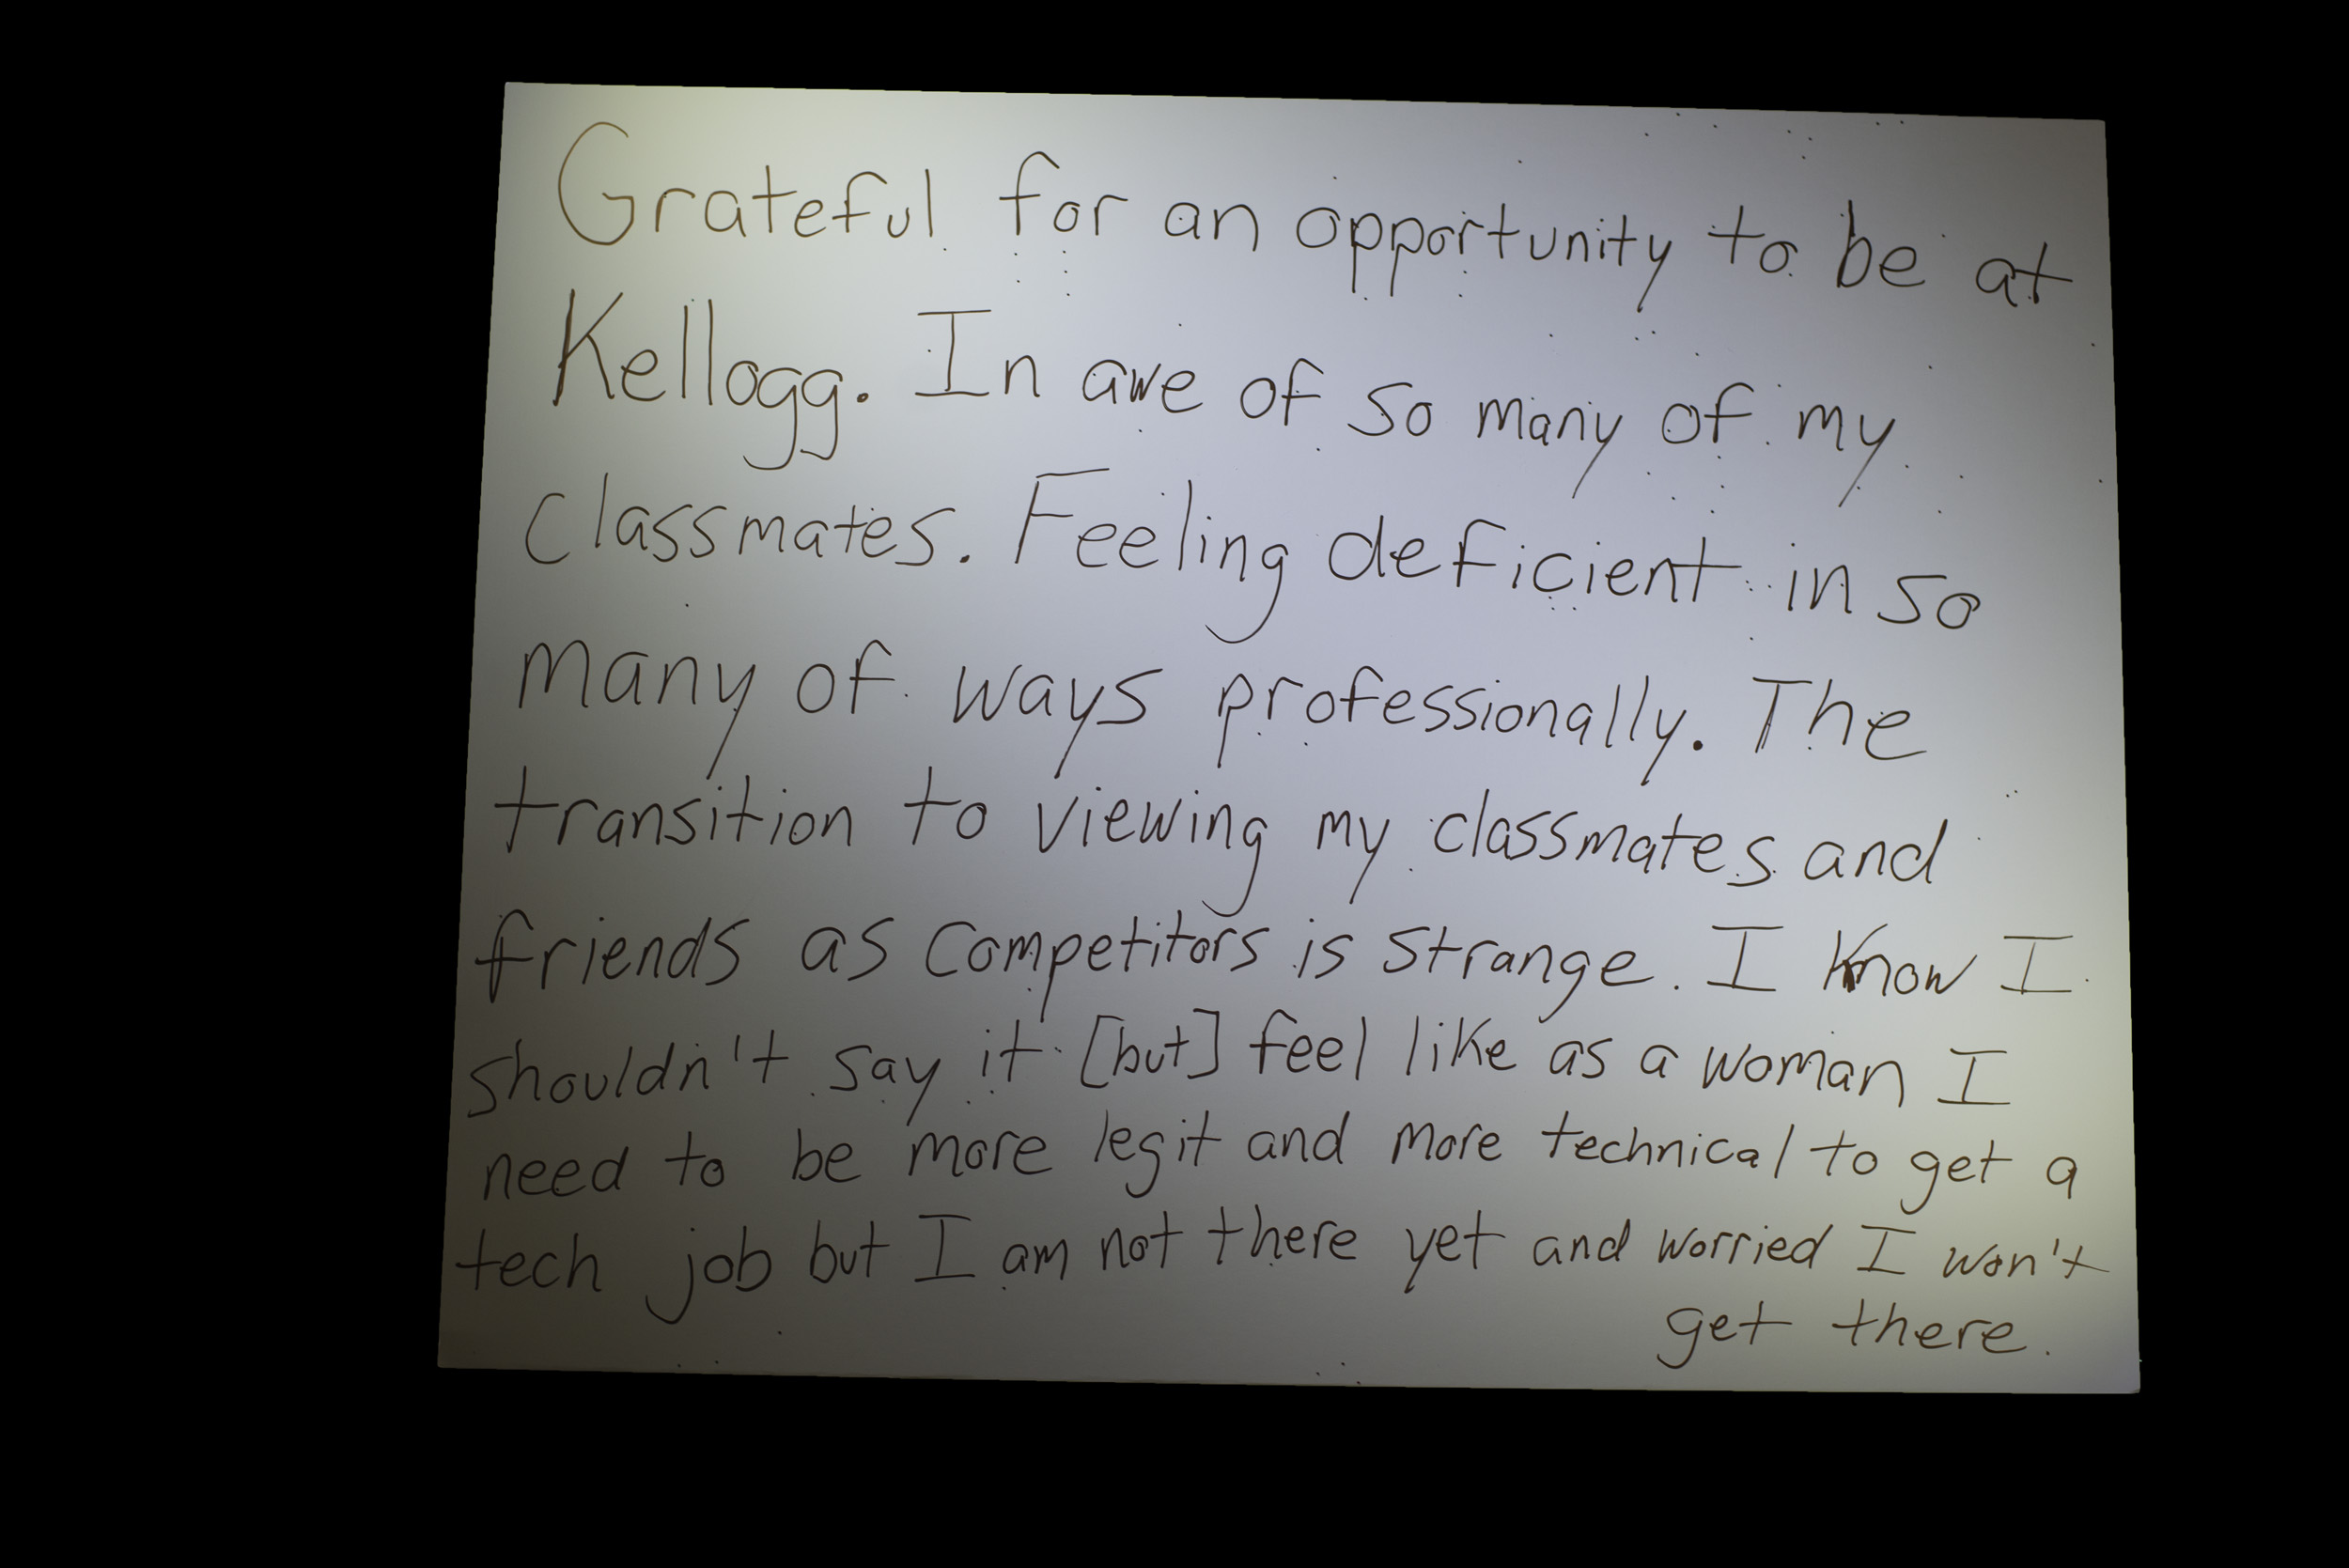 Grateful for an opportunity to be at
Kellogg. In awe of so many of my
classmates. Feeling deficient in so
many of ways professionally. The
transition to viewing my classmates and
friends as competitors is strange. I know I
shouldn't say it [but] feel like as a woman I
need to be more legit and more technical to get a
tech job but I am not there yet and worried I won't
get there.